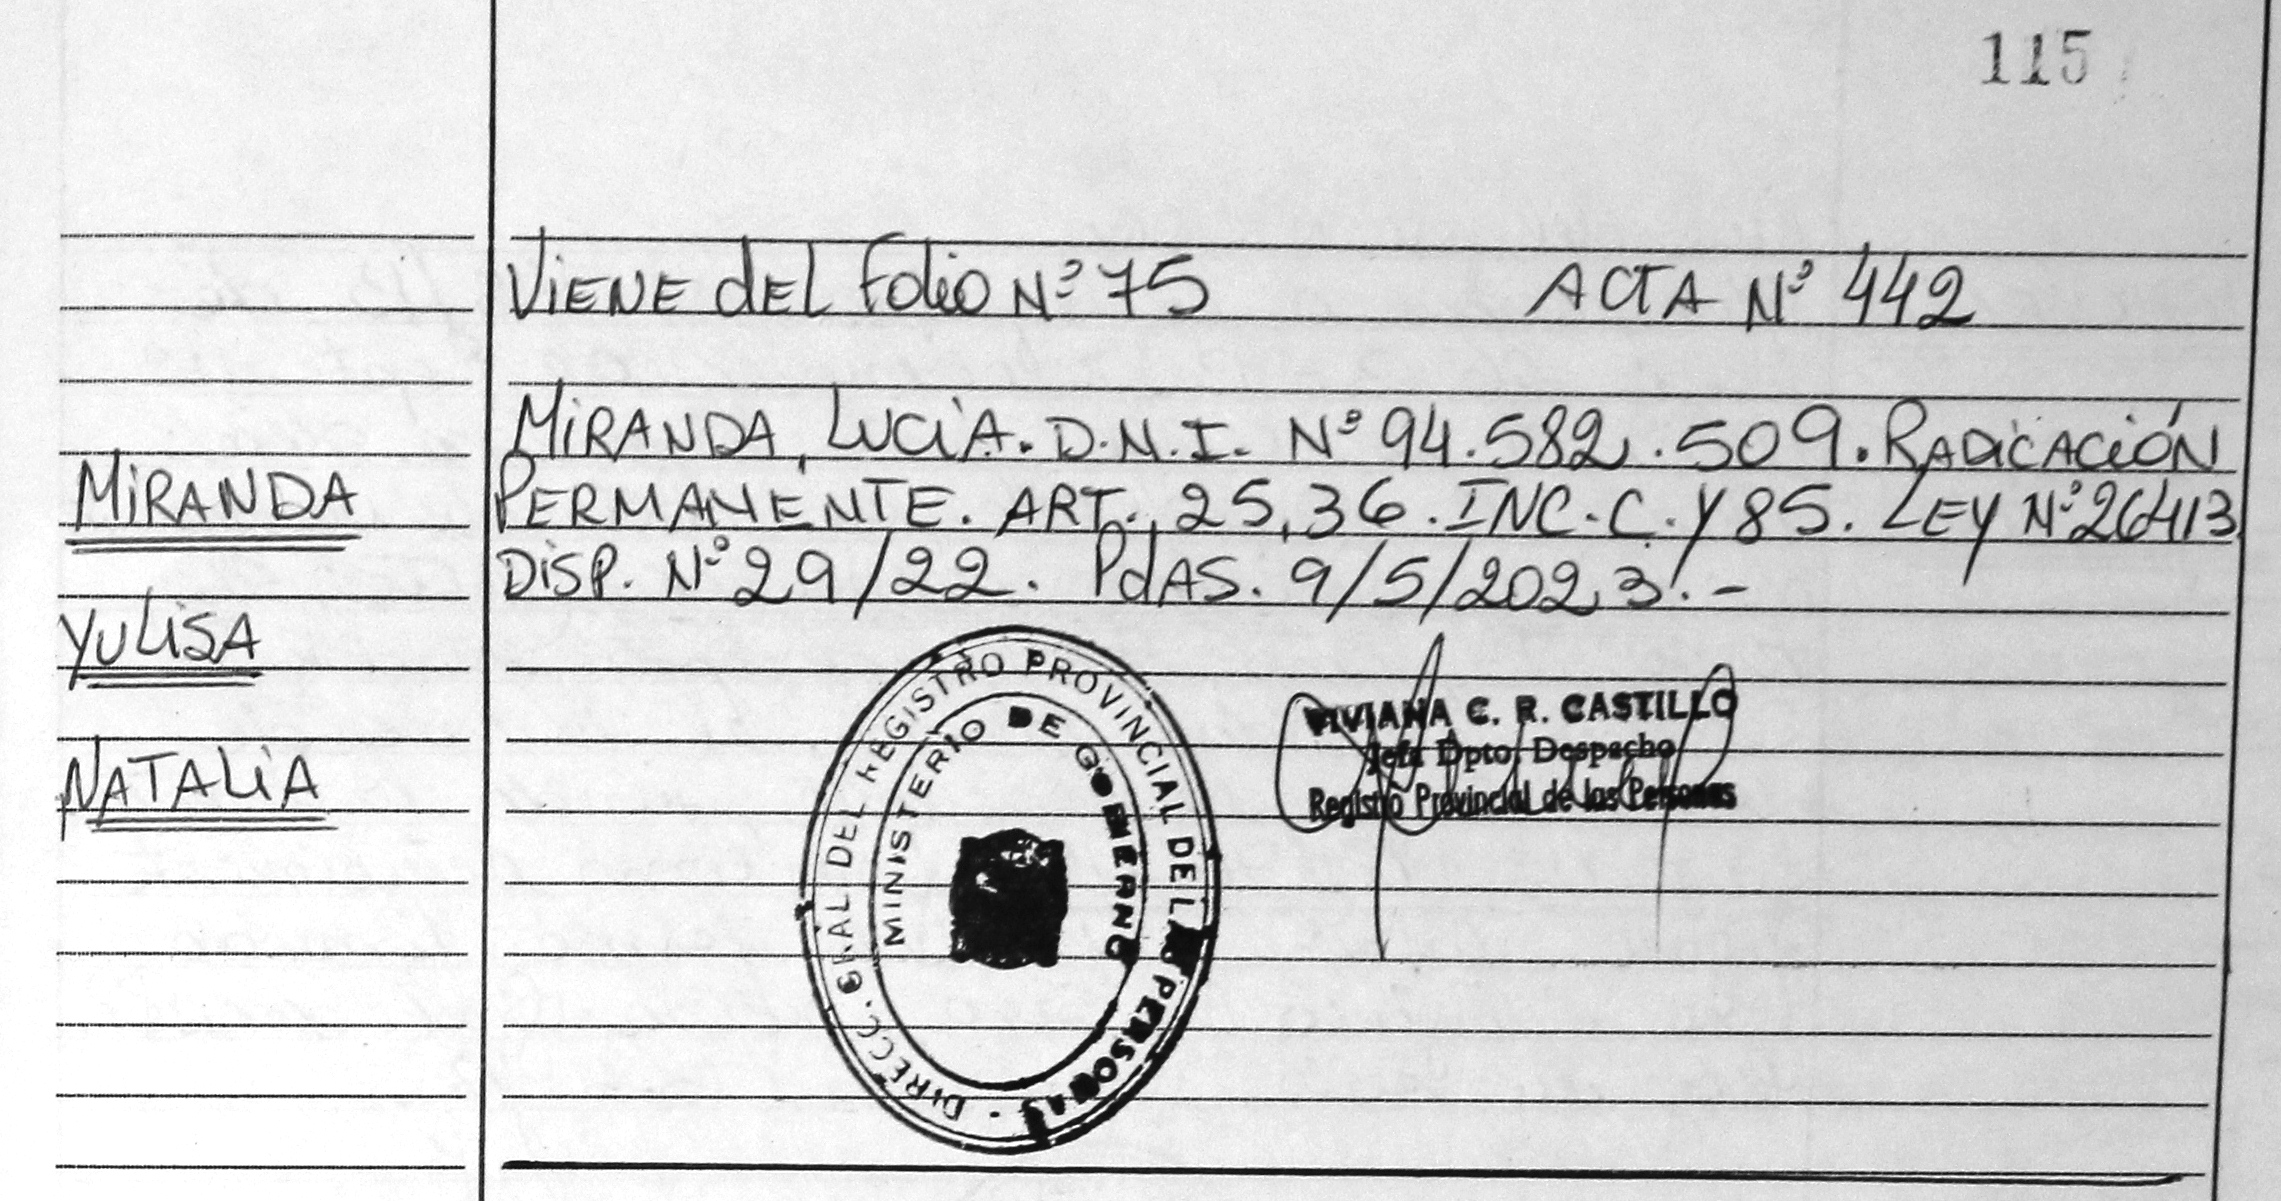 115
VIENE dEL Folio Nº 75 ACTA Nº 442
MIRANDA, LUCÍA. D.N.I. Nº 94.582.509. RADICACIÓN
PERMANENTE. ART., 25, 36. INC. C. Y 85. LEY Nº 26413
DISP. Nº 29/22. PdAS. 9/5/2023.-
MIRANDA
YULISA
NATALIA
DIRECC. GRAL DEL REGISTRO PROVINCIAL DE LAS PERSONAS
MINISTERIO DE GOBIERNO
VIVIANA C. R. CASTILLO
Jefa Dpto. Despacho
Registro Provincial de las Personas